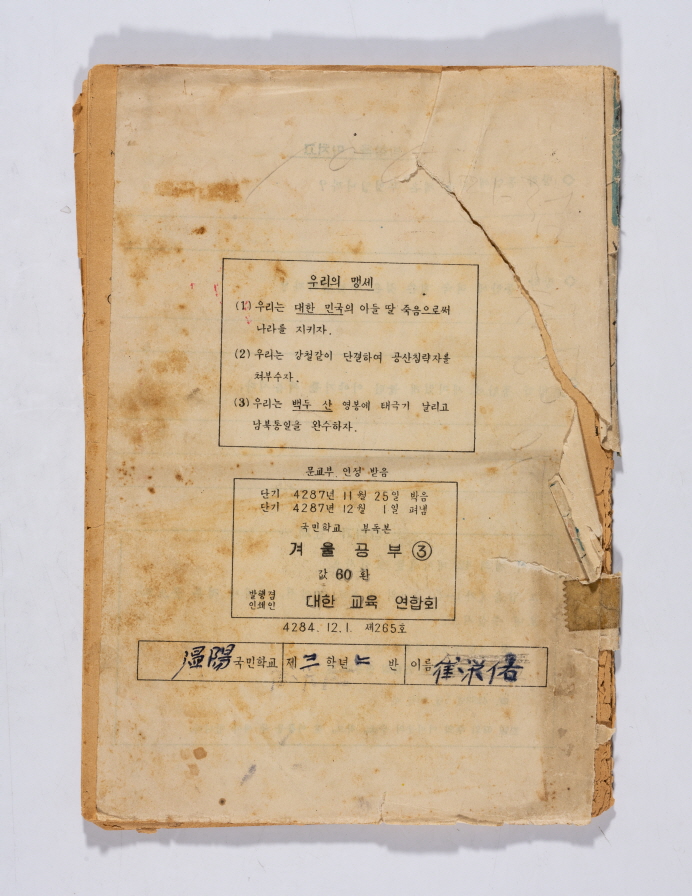 우리의 맹세
(1) 우리는 대한 민국의 아들 딸 죽음으로써
나라를 지키자.
(2) 우리는 강철같이 단결하여 공산침략자를
쳐부수자.
(3) 우리는 백두 산 영봉에 태극기 날리고
남북통일을 완수하자.
문교부 인정 받음
단기 4287년 11월 25일 박음
단기 4287년 12월 1일 펴냄
국민학교 부독본
겨울공부③
값 60환
발행겸 인쇄인 대한 교육 연합회
4284. 12. 1. 제265호
溫陽국민학교 제 三 학년 二 반 이름 崔洪